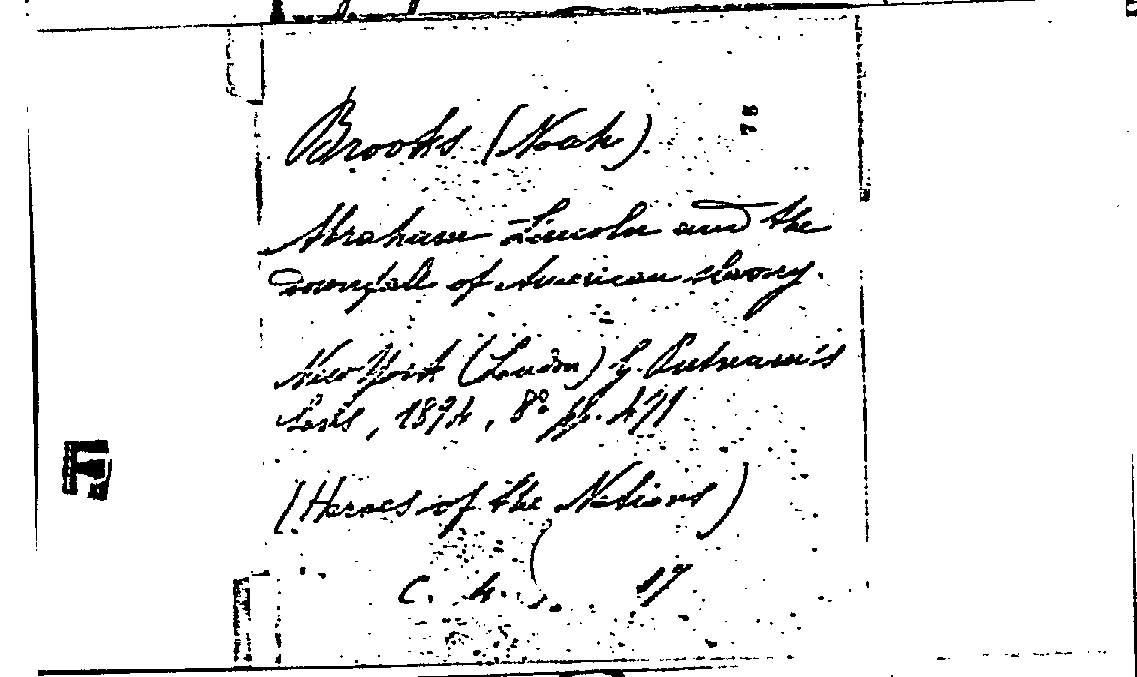 Brooks (Noah)
78
Abraham Lincoln and the
downfall of American slavery.
New York (London) G. Putnam's
Sons, 1894, 8° pp. 471
(Heroes of the Nations)
C. 4. 17